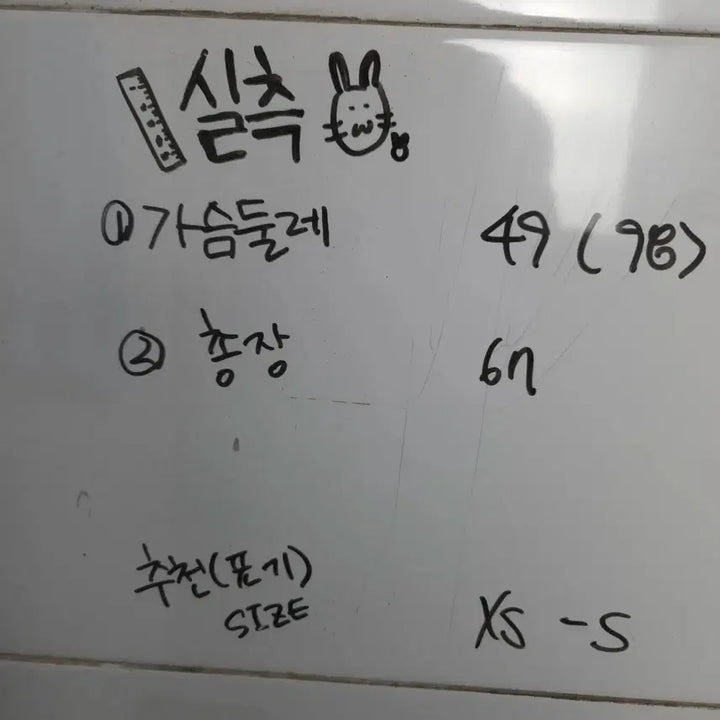 실측
① 가슴둘레 49 (98)
② 총장 67
추천(표기) SIZE XS - S